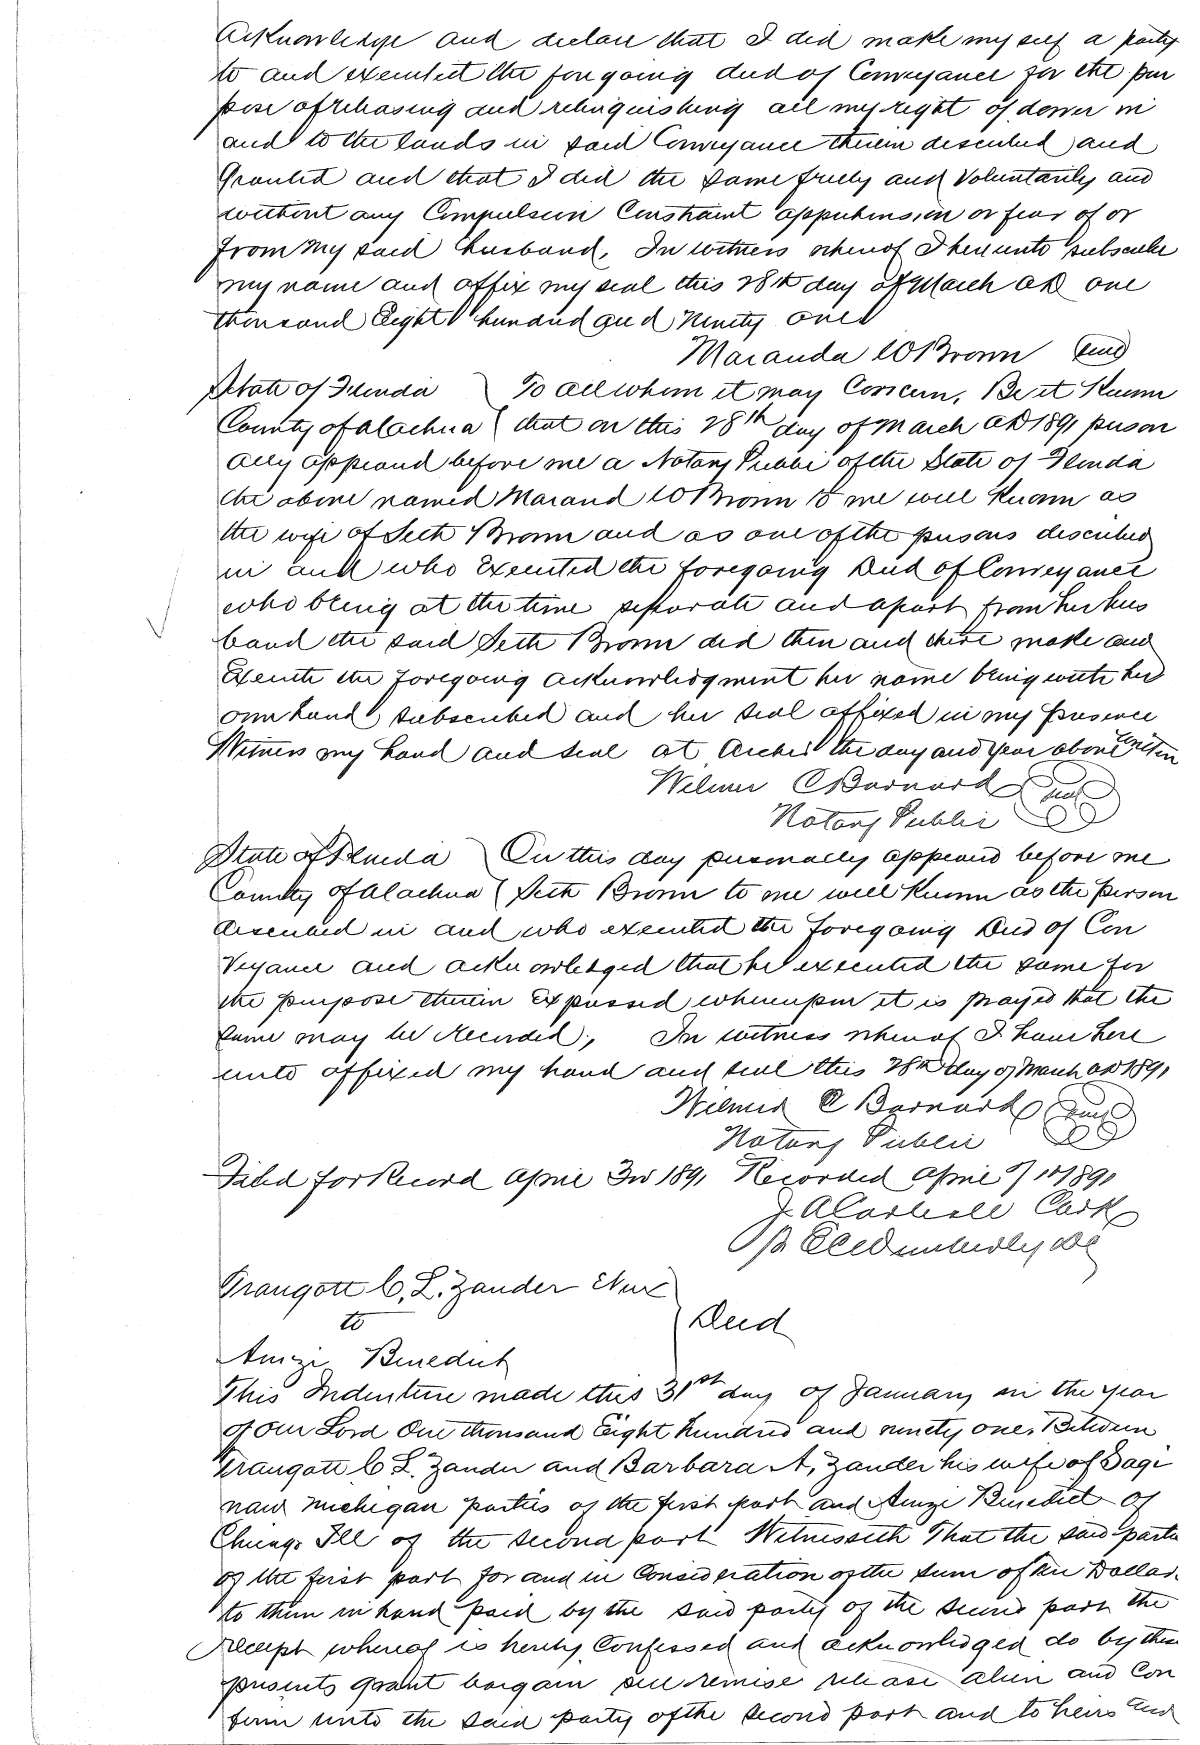 Acknowledge and declare that I did make myself a party
to and executed the foregoing deed of Conveyance for the pur
pose of releasing and relinquishing all my right of dower in
and to the lands in said Conveyance therein described and
Granted and that I did the same freely and Voluntarily and
without any Compulsion Constraint apprehension or fear of or
from my said husband, In witness whereof I hereunto subscribe
my name and affix my seal this 28th day of March AD one
thousand Eight hundred and Ninety one
Maranda W Brown Seal
State of Florida To all whom it may Concern, Be it Known
County of Alachua that on this 28th day of March AD 1891 person
ally appeared before me a Notary Public of the State of Florida
the above named Marand W Brown to me well Known as
the wife of Seth Brown and as one of the persons described
in and who Executed the foregoing Deed of Conveyance
who being at the time separate and apart from her hus
band the said Seth Brown did then and there make and
Execute the foregoing acknowledgment her name being with her
own hand subscribed and her seal affixed in my presence
Witness my hand and seal at Archer the day and year above written
Wilmer C Barnard Seal
Notary Public
State of Florida On this day personally appeared before me
County of Alachua Seth Brown to me well Known as the person
described in and who executed the foregoing Deed of Con
Veyance and acknowledged that he executed the same for
the purpose therein Expressed whereupon it is prayed that the
same may be Recorded, In witness whereof I have here
unto affixed my hand and seal this 28th day of March AD 1891
Wilmer C Barnard Seal
Notary Public
Filed for Record April 3rd 1891 Recorded April 1891
J. A Carlisle Clerk
Traugott C. L. Zander Et ux
to Deed
Amzi Benedict
This Indenture made this 31st day of January in the year
of our Lord One thousand Eight hundred and ninety one. Between
Traugott C L. Zander and Barbara A, Zander his wife of Sagi
naw Michigan parties of the first part and Amzi Benedict of
Chicago Ill of the second part Witnesseth That the said partie
of the first part for and in Consideration of the sum of ten Dollar
to them in hand paid by the said party of the second part the
receipt whereof is hereby Confessed and acknowledged do by these
presents grant bargain sell remise release alien and Con
firm unto the said party of the second part and to heirs and